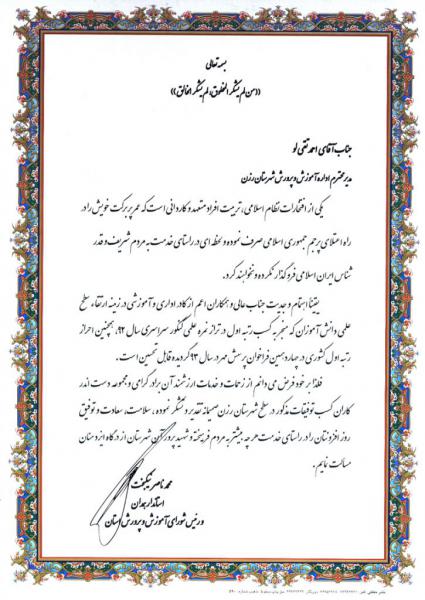 بسمه تعالی
«من لم یشکر المخلوق، لم یشکر الخالق»
جناب آقای احمد تقی لو
مدیر محترم اداره آموزش و پرورش شهرستان رزن
یکی از افتخارات نظام اسلامی، تربیت افراد متعهد و کاردانی است که عمر پر برکت خویش را در
راه اعتلای پرچم جمهوری اسلامی صرف نموده و لحظه ای در راستای خدمت به مردم شریف و قدر
شناس ایران اسلامی فروگذار نکرده و نخواهند کرد.
یقینا اهتمام و جدیت جناب عالی و همکاران اعم از کادر اداری و آموزشی در زمینه ارتقاء سطح
علمی دانش آموزان که منجر به کسب رتبه اول در تراز نمره علمی کنکور سراسری سال ۹۲، همچنین احراز
رتبه اول کشوری در چهاردهمین فراخوان پرسش مهر در سال ۹۲ گردیده قابل تحسین است.
فلذا بر خود فرض می دانم از زحمات و خدمات ارزشمند آن برادر گرامی و مجموعه دست اندر
کاران کسب توفیقات مذکور در سطح شهرستان رزن صمیمانه تقدیر و تشکر نموده، سلامت، سعادت و توفیق
روز افزونتان را در راستای خدمت هر چه بیشتر به مردم فرهیخته و شهید پرور آن شهرستان از درگاه ایزد منان
مسألت نمایم.
محمد ناصر نیکبخت
استاندار همدان
و رئیس شورای آموزش و پرورش استان